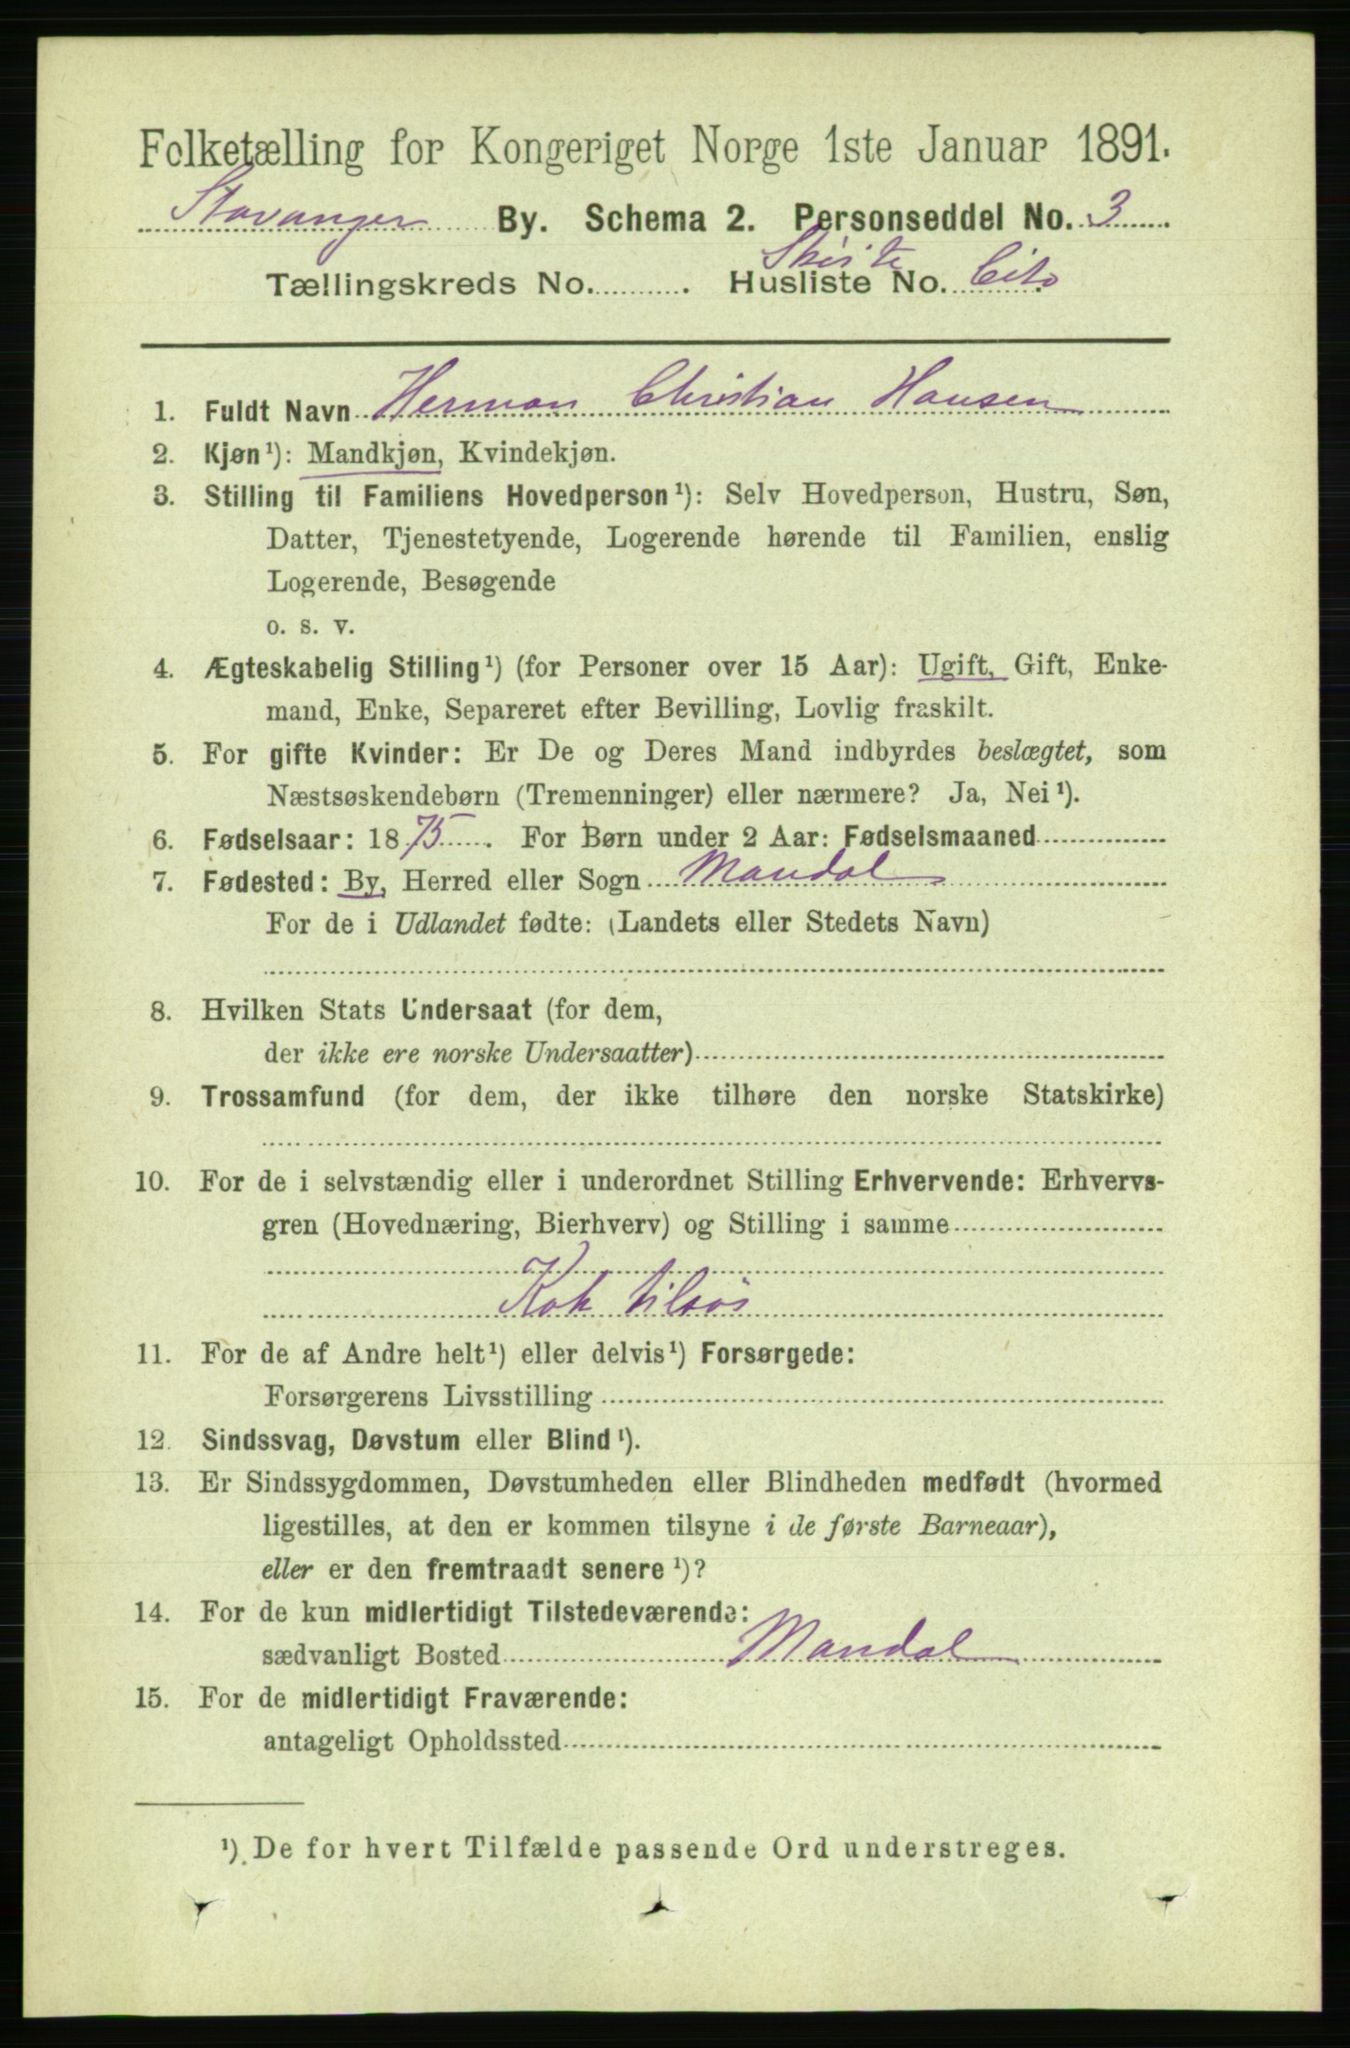 Folketælling for Kongeriget Norge 1ste Januar 1891.
Stavanger By. Schema 2. Personseddel No. 3
Tællingskreds No. . Husliste No. Cito
1. Fuldt Navn Herman Christian Hansen
2. Kjøn¹): Mandkjøn, Kvindekjøn.
3. Stilling til Familiens Hovedperson¹): Selv Hovedperson, Hustru, Søn,
Datter, Tjenestetyende, Logerende hørende til Familien, enslig
Logerende, Besøgende
o. s. v.
4. Ægteskabelig Stilling¹) (for Personer over 15 Aar): Ugift, Gift, Enke-
mand, Enke, Separeret efter Bevilling, Lovlig fraskilt.
5. For gifte Kvinder: Er De og Deres Mand indbyrdes beslægtet, som
Næstsøskendebørn (Tremenninger) eller nærmere? Ja, Nei¹).
6. Fødselsaar: 1875. For Børn under 2 Aar: Fødselsmaaned
7. Fødested: By, Herred eller Sogn Mandal
For de i Udlandet fødte: (Landets eller Stedets Navn)
8. Hvilken Stats Undersaat (for dem,
der ikke ere norske Undersaatter)
9. Trossamfund (for dem, der ikke tilhøre den norske Statskirke)
10. For de i selvstændig eller i underordnet Stilling Erhvervende: Erhvervs-
gren (Hovednæring, Bierhverv) og Stilling i samme
Kok tilsøs
11. For de af Andre helt¹) eller delvis¹) Forsørgede:
Forsørgerens Livsstilling
12. Sindssvag, Døvstum eller Blind¹).
13. Er Sindssygdommen, Døvstumheden eller Blindheden medfødt (hvormed
ligestilles, at den er kommen tilsyne i de første Barneaar),
eller er den fremtraadt senere¹)?
14. For de kun midlertidigt Tilstedeværende:
sædvanligt Bosted Mandal
15. For de midlertidigt Fraværende:
antageligt Opholdssted
¹) De for hvert Tilfælde passende Ord understreges.